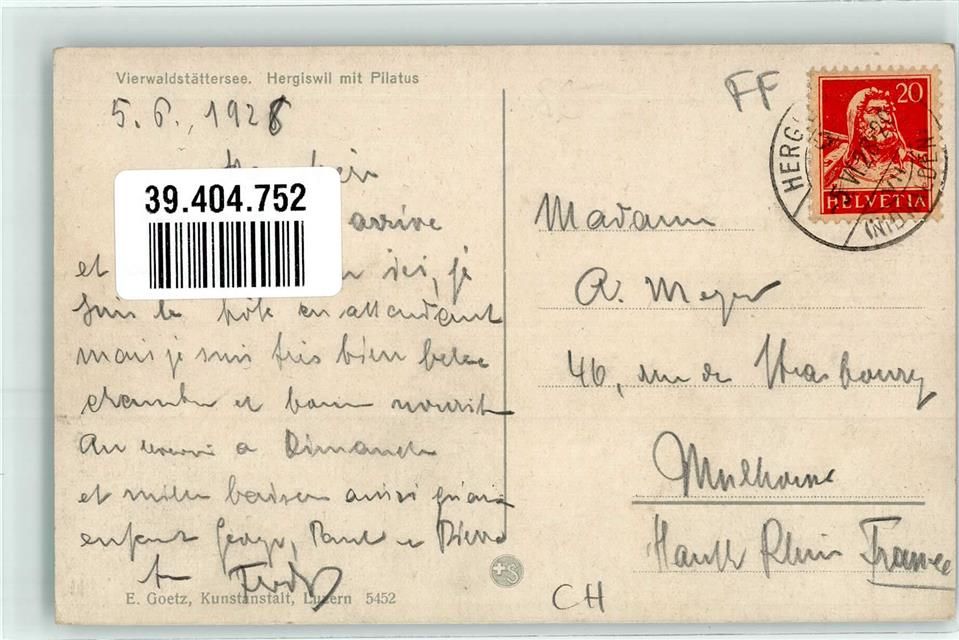 Vierwaldstättersee. Hergiswil mit Pilatus
5.6., 1928
39.404.752
arrive
et ici, je
suis le hôte en attendant
mais je suis très bien belle
chambre et bonne nourrit
Au revoir a Dimanche
et mille baisers ainsi qu'aux
enfant George, Paul et Pierre
E. Goetz, Kunstanstalt, Luzern 5452
FF
20
HELVETIA
HERG
Madame
A. Meyer
46, rue de Strasbourg
Mulhouse
Hauth Rhin France
CH